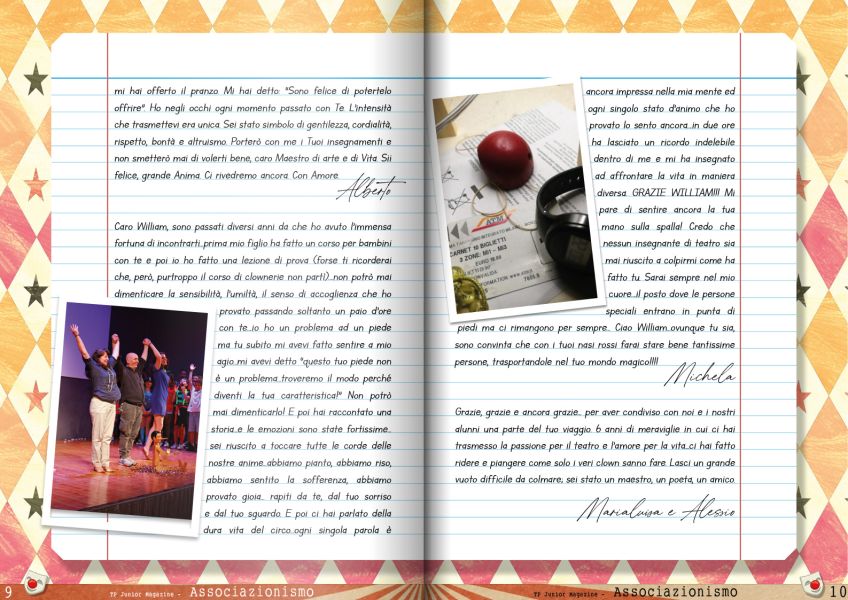 mi hai offerto il pranzo. Mi hai detto: "Sono felice di potertelo
offrire". Ho negli occhi ogni momento passato con Te. L'intensità
che trasmettevi era unica. Sei stato simbolo di gentilezza, cordialità,
rispetto, bontà e altruismo. Porterò con me i Tuoi insegnamenti e
non smetterò mai di volerti bene, caro Maestro di arte e di Vita. Sii
felice, grande Anima. Ci rivedremo ancora. Con Amore.
Alberto
Caro William, sono passati diversi anni da che ho avuto l'immensa
fortuna di incontrarti...prima mio figlio ha fatto un corso per bambini
con te e poi io ho fatto una lezione di prova (forse ti ricorderai
che, però, purtroppo il corso di clownerie non partì)...non potrò mai
dimenticare la sensibilità, l'umiltà, il senso di accoglienza che ho
provato passando soltanto un paio d'ore
con te...io ho un problema ad un piede
ma tu subito mi avevi fatto sentire a mio
agio...mi avevi detto "questo tuo piede non
è un problema...troveremo il modo perché
diventi la tua caratteristica!" Non potrò
mai dimenticarlo! E poi hai raccontato una
storia...e le emozioni sono state fortissime...
sei riuscito a toccare tutte le corde delle
nostre anime...abbiamo pianto, abbiamo riso,
abbiamo sentito la sofferenza, abbiamo
provato gioia... rapiti da te, dal tuo sorriso
e dal tuo sguardo. E poi ci hai parlato della
dura vita del circo...ogni singola parola è
9 TP Junior Magazine - Associazionismo
ancora impressa nella mia mente ed
ogni singolo stato d'animo che ho
provato lo sento ancora...in due ore
ha lasciato un ricordo indelebile
dentro di me e mi ha insegnato
ad affrontare la vita in maniera
diversa. GRAZIE WILLIAM!!!! Mi
pare di sentire ancora la tua
mano sulla spalla! Credo che
nessun insegnante di teatro sia
mai riuscito a colpirmi come ha
fatto tu. Sarai sempre nel mio
cuore...il posto dove le persone
speciali entrano in punta di
piedi ma ci rimangono per sempre... Ciao William...ovunque tu sia,
sono convinta che con i tuoi nasi rossi farai stare bene tantissime
persone, trasportandole nel tuo mondo magico!!!!
Michela
Grazie, grazie e ancora grazie... per aver condiviso con noi e i nostri
alunni una parte del tuo viaggio. 6 anni di meraviglie in cui ci hai
trasmesso la passione per il teatro e l'amore per la vita...ci hai fatto
ridere e piangere come solo i veri clown sanno fare. Lasci un grande
vuoto difficile da colmare; sei stato un maestro, un poeta, un amico.
Marialuisa e Alessio
CARNET 10 BIGLIETTI
3 ZONE: MI1 - MI3
TP Junior Magazine - Associazionismo 10